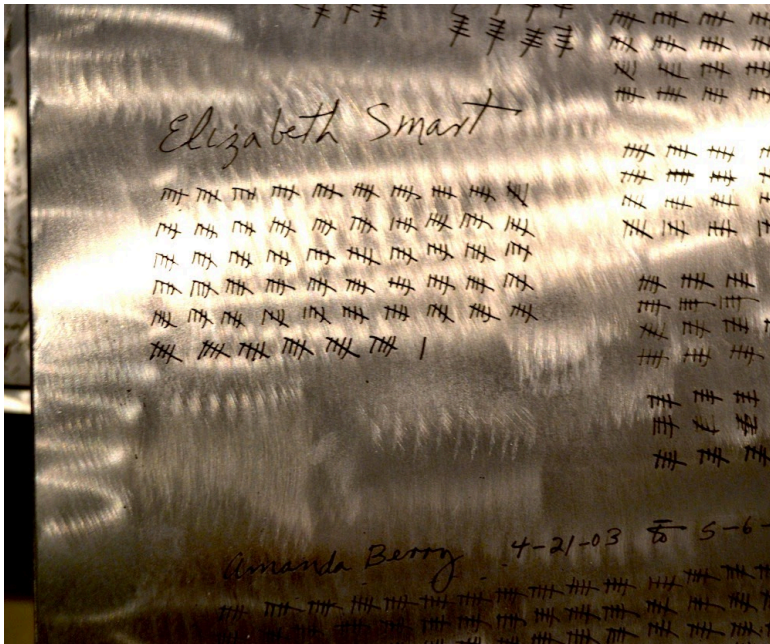 Elizabeth Smart
Amanda Berry 4-21-03 to 5-6-